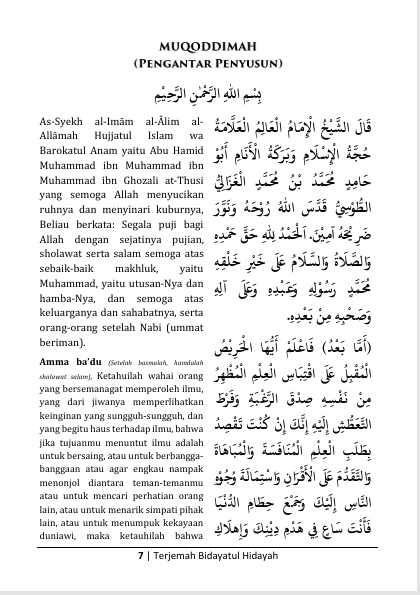 MUQODDIMAH
(PENGANTAR PENYUSUN)
بِسْمِ اللهِ الرَّحْمٰنِ الرَّحِيْمِ
As-Syekh al-Imām al-Ālim al-
Allāmah Hujjatul Islam wa
Barokatul Anam yaitu Abu Hamid
Muhammad ibn Muhammad ibn
Muhammad ibn Ghozali at-Thusi
yang semoga Allah menyucikan
ruhnya dan menyinari kuburnya,
Beliau berkata: Segala puji bagi
Allah dengan sejatinya pujian,
sholawat serta salam semoga atas
sebaik-baik makhluk, yaitu
Muhammad, yaitu utusan-Nya dan
hamba-Nya, dan semoga atas
keluarganya dan sahabatnya, serta
orang-orang setelah Nabi (ummat
beriman).
Amma ba’du (Setelah basmalah, hamdalah
sholawat salam), Ketahuilah wahai orang
yang bersemanagat memperoleh ilmu,
yang dari jiwanya memperlihatkan
keinginan yang sungguh-sungguh, dan
yang begitu haus terhadap ilmu, bahwa
jika tujuanmu menuntut ilmu adalah
untuk bersaing, atau untuk berbangga-
banggaan atau agar engkau nampak
menonjol diantara teman-temanmu
atau untuk mencari perhatian orang
lain, atau untuk menarik simpati pihak
lain, atau untuk menumpuk kekayaan
duniawi, maka ketauhilah bahwa
قَالَ الشَّيْخُ الْإِمَامُ الْعَالِمُ الْعَلَّامَةُ
حُجَّةُ الْإِسْلَامِ وَبَرَكَةُ الْأَنَامِ أَبُوْ
حَامِدٍ مُحَمَّدُ بْنُ مُحَمَّدٍ الْغَزَالِيُّ
الطُّوْسِيُّ قَدَّسَ اللهُ رُوْحَهُ وَنَوَّرَ
ضَرِيْحَهُ آمِيْنَ. اَلْحَمْدُ لِلّٰهِ حَقَّ حَمْدِهِ
وَالصَّلَاةُ وَالسَّلَامُ عَلَى خَيْرِ خَلْقِهِ
مُحَمَّدٍ رَسُوْلِهِ وَعَبْدِهِ وَعَلَى آلِهِ
وَصَحْبِهِ مِنْ بَعْدِهِ.
(أَمَّا بَعْدُ) فَاعْلَمْ أَيُّهَا الْحَرِيْصُ
الْمُقْبِلُ عَلَى اقْتِبَاسِ الْعِلْمِ الْمُظْهِرُ
مِنْ نَفْسِهِ صِدْقَ الرَّغْبَةِ وَفَرْطَ
التَّعَطُّشِ إِلَيْهِ إِنَّكَ إِنْ كُنْتَ تَقْصِدُ
بِطَلَبِ الْعِلْمِ الْمُنَافَسَةَ وَالْمُبَاهَاةَ
وَالتَّقَدُّمَ عَلَى الْأَقْرَانِ وَاسْتِمَالَةَ وُجُوْهِ
النَّاسِ إِلَيْكَ وَجَمْعَ حِطَامِ الدُّنْيَا
فَأَنْتَ سَاعٍ فِي هَدْمِ دِيْنِكَ وَإِهْلَاكِ
7 | Terjemah Bidayatul Hidayah